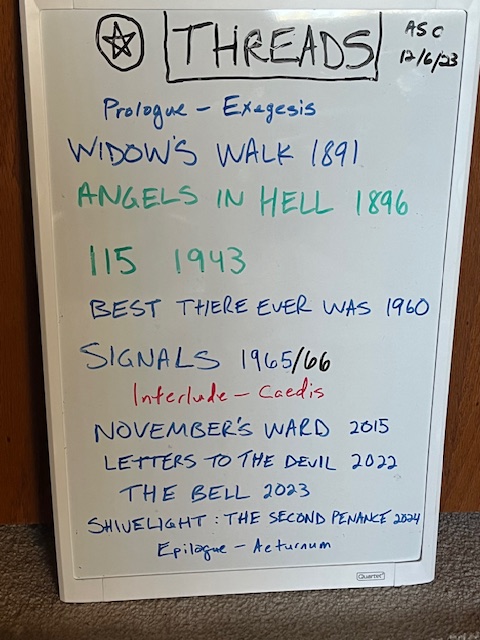 THREADS
ASC
12/6/23
Prologue - Exegesis
WIDOW'S WALK 1891
ANGELS IN HELL 1896
115 1943
BEST THERE EVER WAS 1960
SIGNALS 1965/66
Interlude - Caedis
NOVEMBER'S WARD 2015
LETTERS TO THE DEVIL 2022
THE BELL 2023
SHIVELIGHT: THE SECOND PENANCE 2024
Epilogue - Aeturnum
Quartet